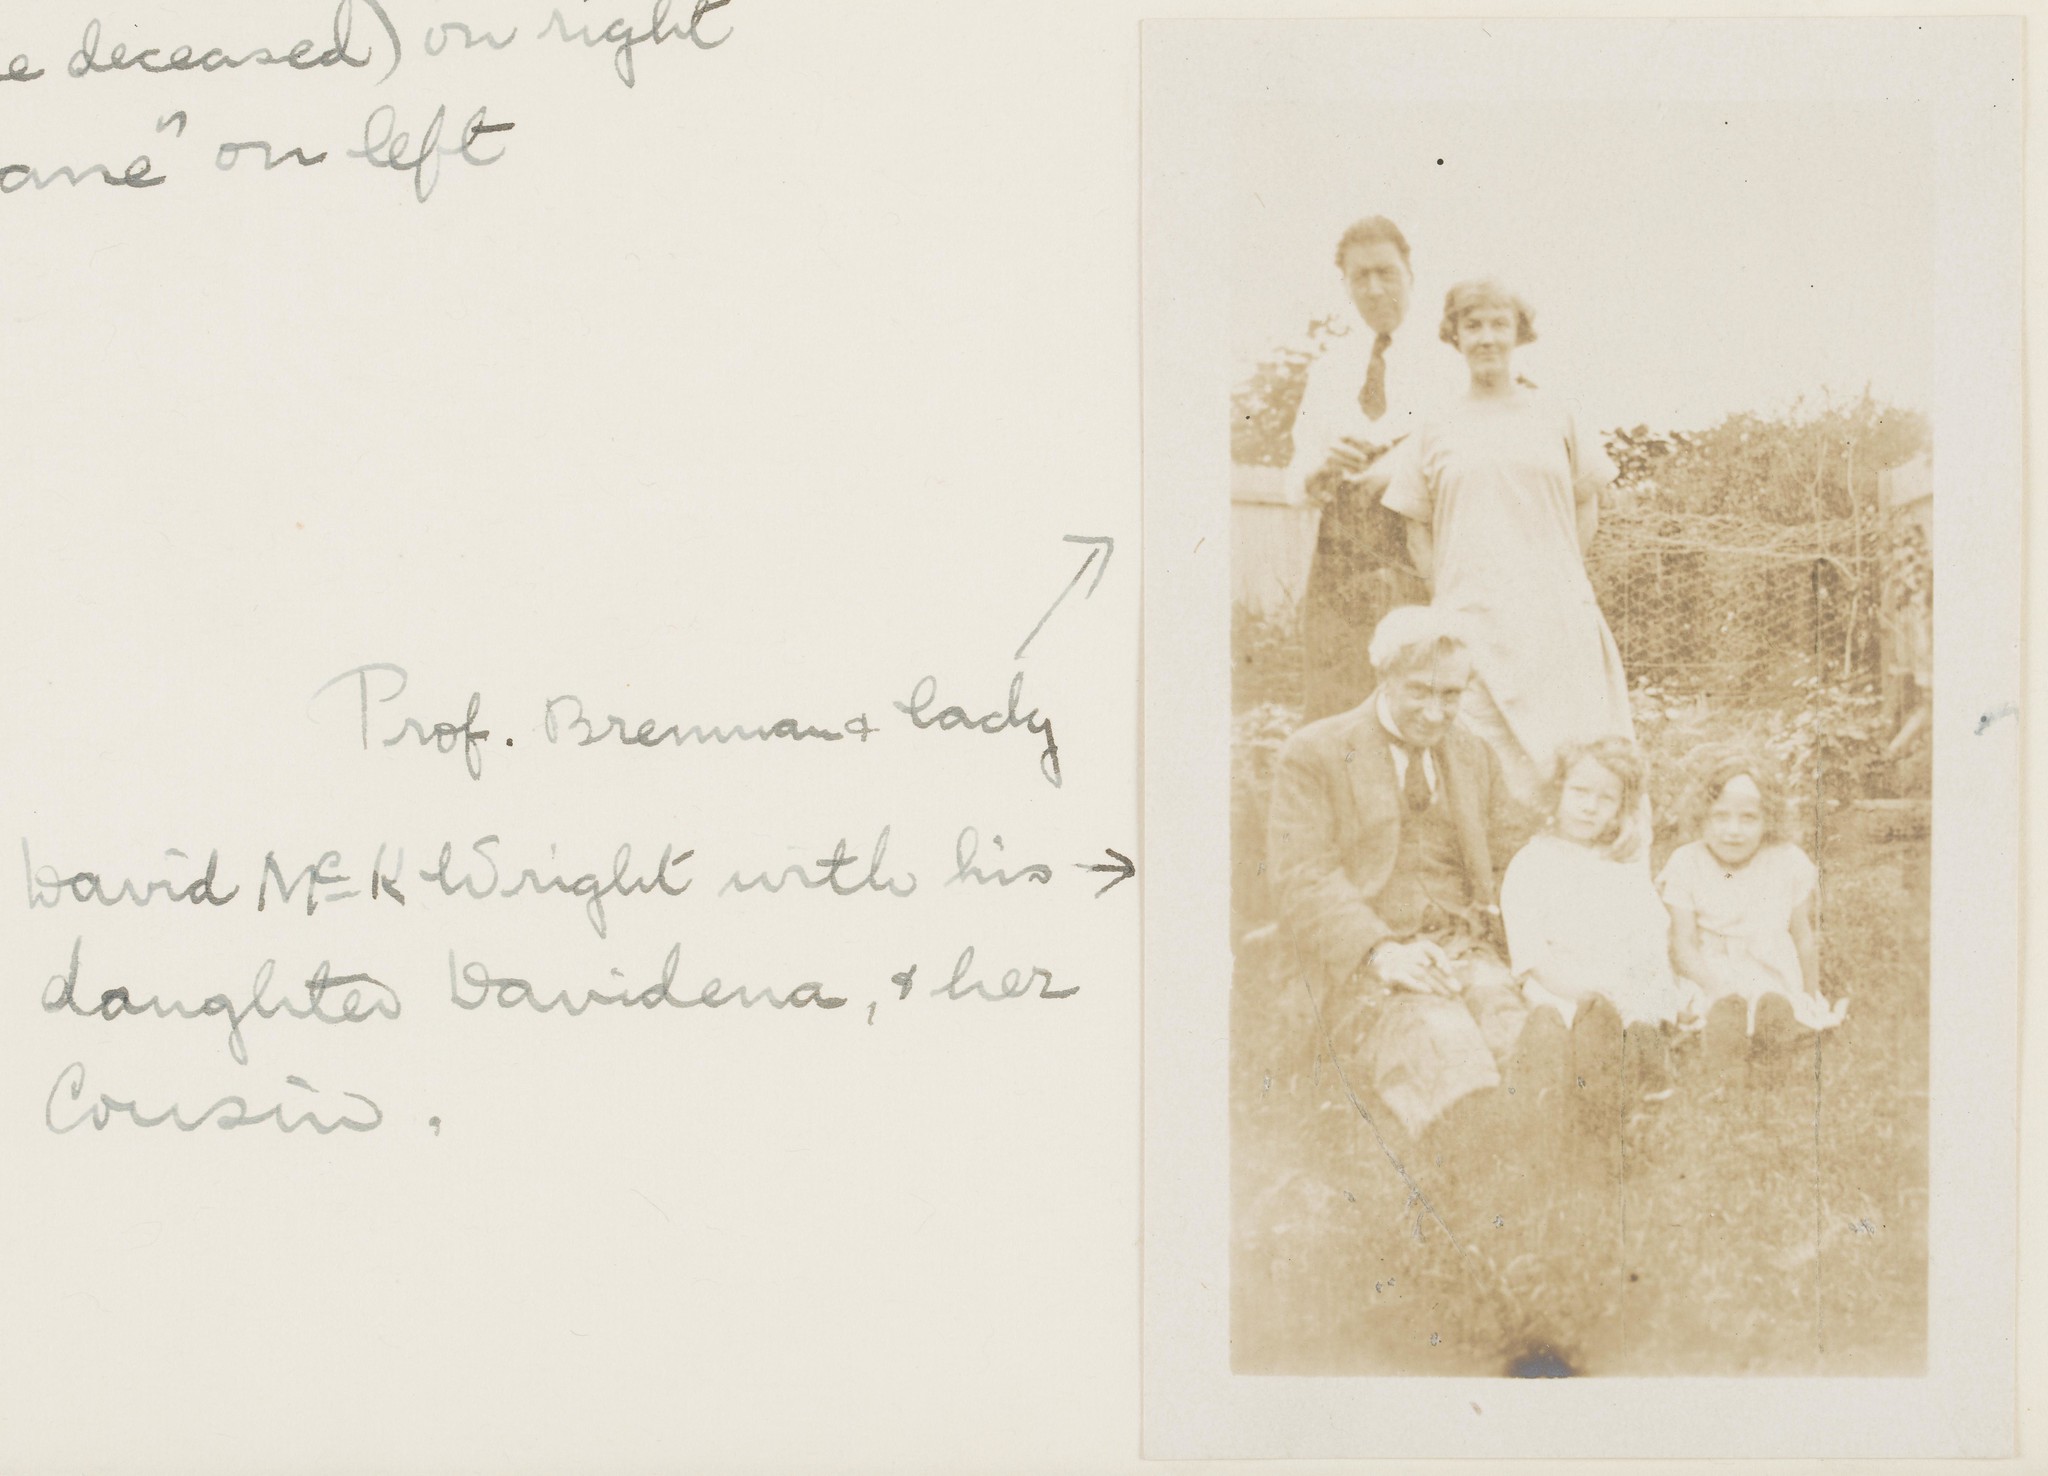 e deceased) on right
ane" on left
Prof. Brennan & lady
David McK Wright with his
daughter Davidena, & her
Cousin.